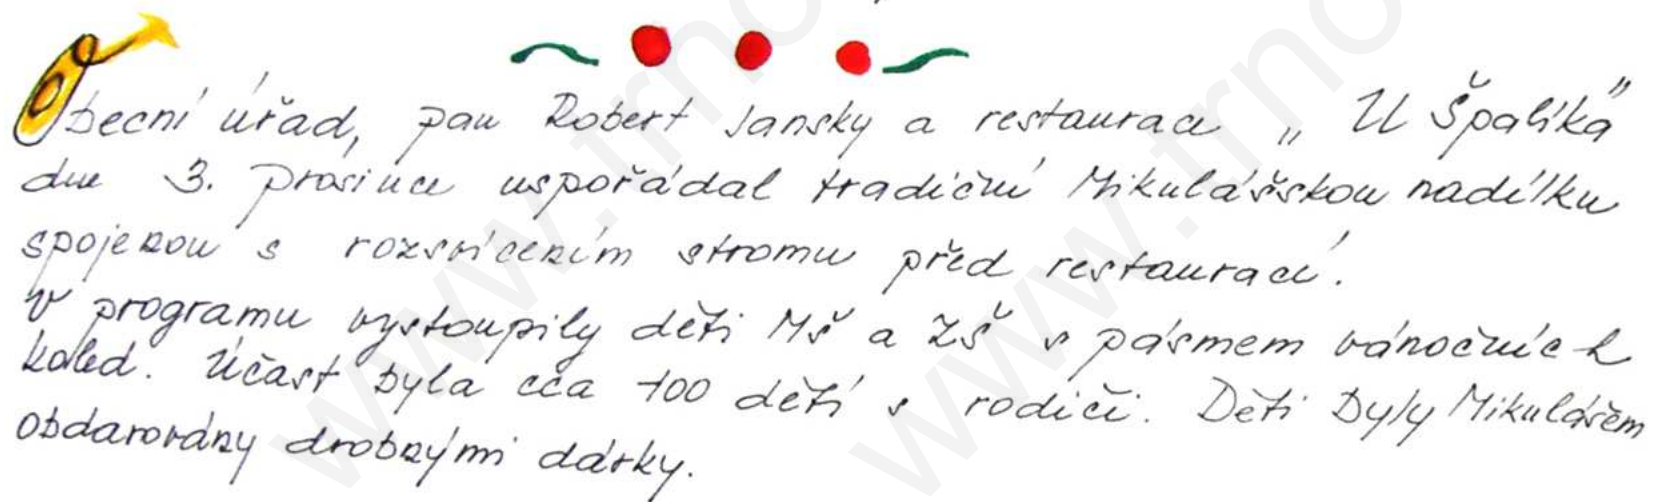 Obecní úřad, pan Robert Jansky a restaurace „ U Špalíka"
dne 3. prosince uspořádal tradiční Mikulášskou nadílku
spojenou s rozsvícením stromu před restaurací.
V programu vystoupily děti MŠ a ZŠ s pásmem vánočních
koled. Účast byla cca 100 dětí s rodiči. Děti byly Mikulášem
obdarovány drobnými dárky.